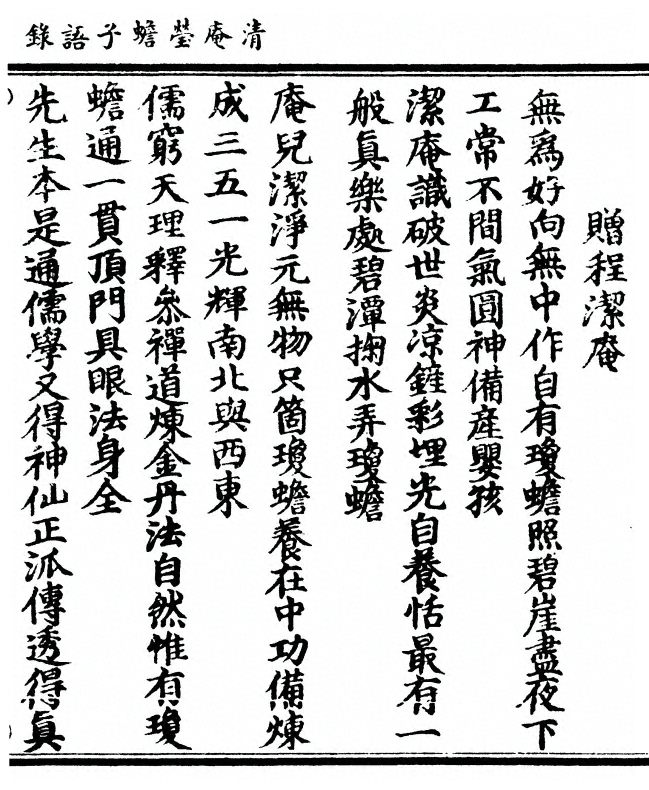 清庵瑩蟾子語錄
贈程潔庵
無爲好向無中作自有瓊蟾照碧崖盡夜下
工常不間氣圓神備産嬰孩
潔庵識破世炎凉鏟彩埋光自養恬最有一
般眞樂處碧潭掬水弄瓊蟾
庵兒潔淨元無物只箇瓊蟾養在中功備煉
成三五一光輝南北與西東
儒窮天理釋叅禪道煉金丹法自然惟有瓊
蟾通一貫頂門具眼法身全
先生本是通儒學又得神仙正派傳透得眞